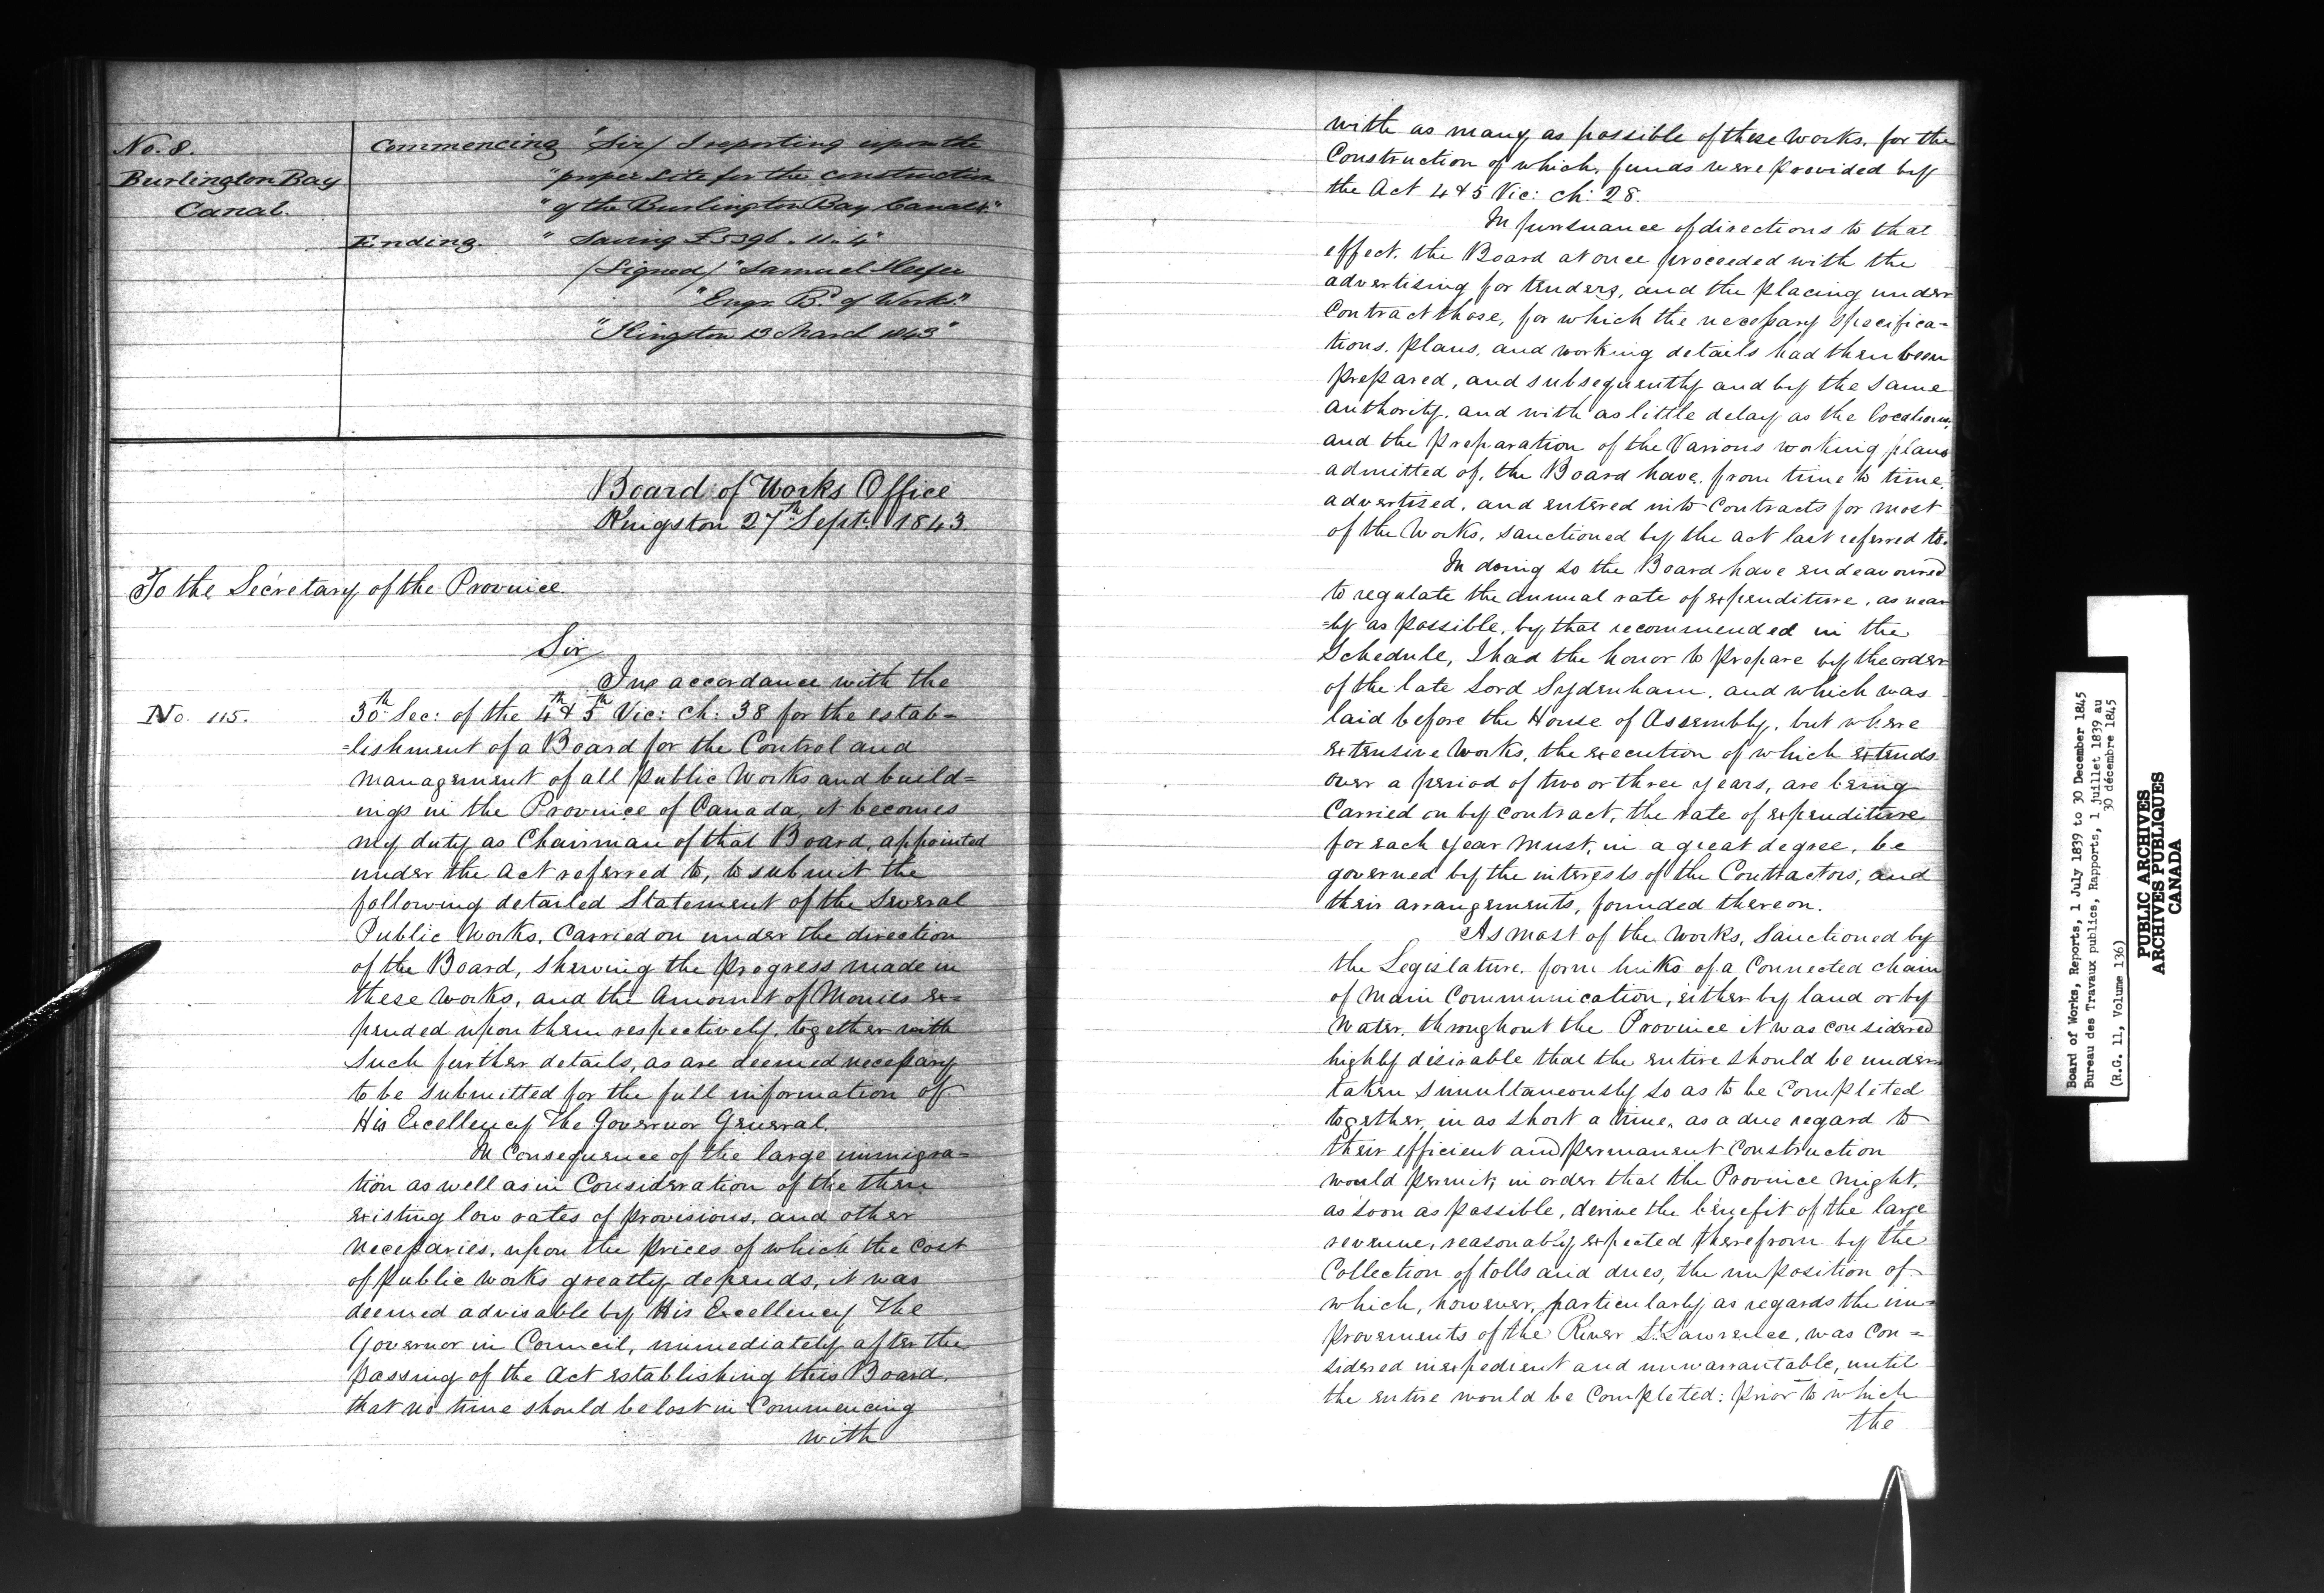 No. 8.
Burlington Bay
Canal.
Commencing "Sir/ I reporting upon the
"proper site for the construction
"of the Burlington Bay Canal."
Ending. " Saving £5396. 11. 4"
/Signed/ "Samuel Keefer
"Engr. Bd. of Works."
"Kingston 13 March 1843"
Board of Works Office
Kingston 27th Septr. 1843.
To the Secretary of the Province.
Sir/
In accordance with the
No. 115.
30th Sec: of the 4th & 5th Vic: ch: 38 for the estab=
=lishment of a Board for the Control and
management of all Public Works and build=
ings in the Province of Canada, it becomes
my duty as Chairman of that Board, appointed
under the Act referred to, to submit the
following detailed Statement of the several
Public Works, Carried on under the direction
of the Board, shewing the progress made in
these Works, and the Amount of Monies ex=
pended upon them respectively, together with
such further details, as are deemed necessary
to be submitted for the full information of
His Excellency The Governor General.
In Consequence of the large immigra=
tion as well as in Consideration of the then
existing low rates of provisions, and other
necessaries, upon the prices of which the Cost
of public works greatly depends, it was
deemed advisable by His Excellency The
Governor in Council, immediately after the
passing of the Act establishing this Board,
that no time should be lost in Commencing
with
with as many as possible of these Works, for the
Construction of which, funds were provided by
the Act 4 & 5 Vic: ch: 28.
In pursuance of directions to that
effect, the Board at once proceeded with the
advertising for tenders, and the placing under
Contract those, for which the necessary Specifica=
tions, plans, and working details had then been
prepared, and subsequently and by the same
authority, and with as little delay as the locations,
and the preparation of the Various working plans
admitted of, the Board have, from time to time,
advertised, and entered into Contracts for most
of the Works, sanctioned by the act last referred to.
In doing so the Board have endeavoured
to regulate the annual rate of expenditure, as near
=ly as possible, by that recommended in the
Schedule, I had the honor to prepare by the order
of the late Lord Sydenham, and which was
laid before the House of Assembly, but where
extensive Works, the execution of which extends
over a period of two or three years, are being
Carried on by contract, the rate of expenditure
for each year must, in a great degree, be
governed by the interests of the Contractors, and
their arrangements, founded thereon.
As most of the Works, Sanctioned by
the Legislature, form links of a Connected chain
of Main Communication, either by land or by
Water, throughout the Province it was considered
highly desirable that the entire should be under
taken simultaneously so as to be Completed
together, in as short a time, as a due regard to
their efficient and permanent Construction
would permit; in order that the Province might,
as soon as possible, derive the benefit of the large
revenue, reasonably expected therefrom by the
Collection of tolls and dues, the imposition of
which, however, particularly as regards the im=
provements of the River St. Lawrence, was Con=
sidered inexpedient and unwarrantable, until
the entire would be Completed: prior to which
the
Board of Works, Reports, 1 July 1839 to 30 December 1845
Bureau des Travaux publics, Rapports, 1 juillet 1839 au
30 décembre 1845
(R.G. 11, Volume 136)
PUBLIC ARCHIVES
ARCHIVES PUBLIQUES
CANADA